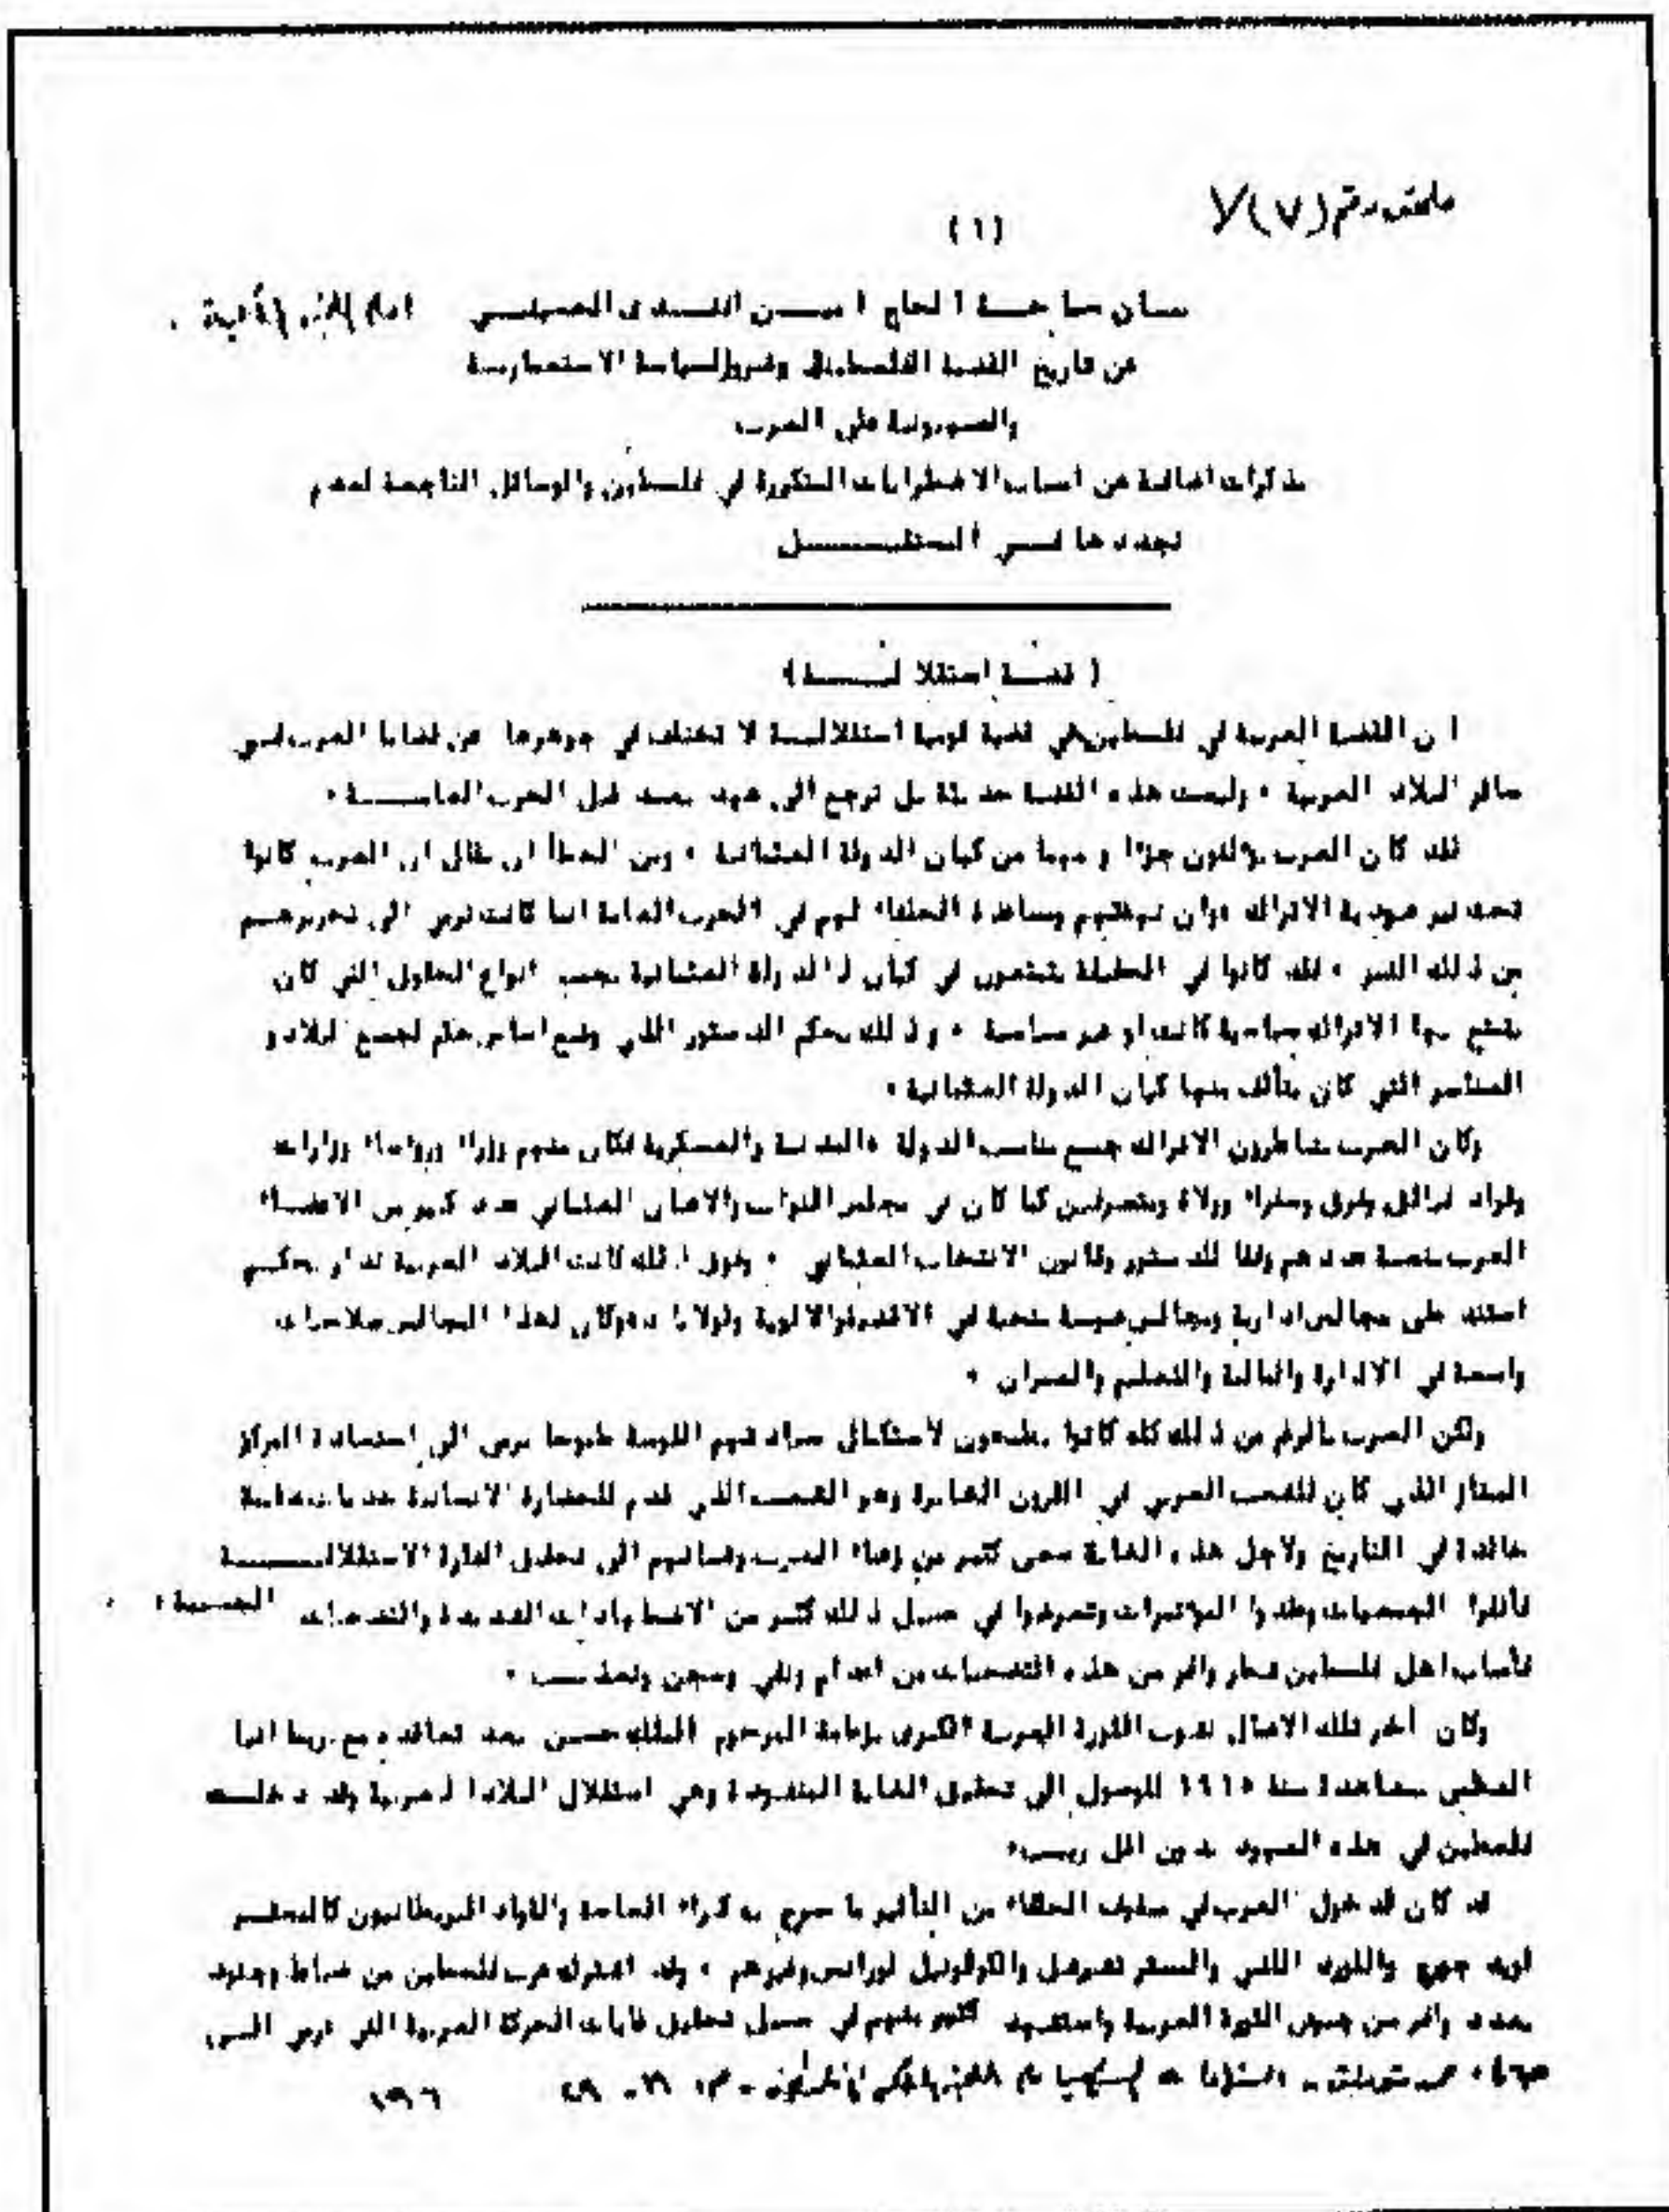 ملحق رقم (٧) ٧
(١)
بيان سماحة الحاج امين افندي الحسيني امام اللجنة الملكية .
عن تاريخ القضية الفلسطينية وضرر السياسة الاستعمارية
والصهيونية على العرب
مذكرات اضافية عن اسباب الاضطرابات المتكررة في فلسطين والوسائل الناجعة لعدم
تجددها في المستقبل
( قضية استقلالية )
ان القضية العربية في فلسطين هي قضية قومية استقلالية لا تختلف في جوهرها عن قضايا العرب في
سائر البلاد العربية ٠ وليست هذه القضية حديثة بل ترجع الى عهد بعيد قبل الحرب العامة ٠
فقد كان العرب يؤلفون جزءا مهما من كيان الدولة العثمانية ٠ ومن الخطأ ان يقال ان العرب كانوا
تحت نير عبودية الاتراك وان نهضتهم ومساعدة الحلفاء لهم في الحرب العامة انما كانت ترمي الى تحريرهم
من ذلك النير ٠ فقد كانوا في الحقيقة يتمتعون في كيان الدولة العثمانية بجميع انواع الحقوق التي كان
يتمتع بها الاتراك سياسية كانت او غير سياسية ٠ وذلك بحكم الدستور الذي وضع اساس حكم لجميع البلاد و
العناصر التي كان يتألف منها كيان الدولة العثمانية ٠
وكان العرب يشاطرون الاتراك جميع مناصب الدولة المدنية والعسكرية فكان منهم وزراء ورؤساء وزارات
وقواد فرق وسفراء وولاة ومتصرفين كما كان في مجلس النواب والاعيان العثماني عدد كبير من الاعضاء
العرب بنسبة عددهم وفقا للدستور وقانون الانتخاب العثماني ٠ وفوق ذلك كانت البلاد العربية تدار بحكم
استند على مجالس ادارية ومجالس عمومية منتخبة في الاقضية والالوية والولايات وكان لهذه المجالس صلاحيات
واسعة في الادارة والمالية والتعليم والعمران ٠
ولكن العرب بالرغم من ذلك كله كانوا يطمحون لاستكمال سيادتهم القومية طموحا يرمي الى استعادة المركز
الممتاز الذي كان للشعب العربي في القرون الغابرة وهو الشعب الذي قدم للحضارة الانسانية خدمات عظيمة
خالدة في التاريخ ولاجل هذه الغاية سعى كثير من زعماء العرب وشبانهم الى تحقيق الفكرة الاستقلالية
فألفوا الجمعيات وعقدوا المؤتمرات وتعرضوا في سبيل ذلك كثير من الاضطهادات الشديدة والتضحيات الجسيمة ٠
فأصاب اهل فلسطين شطر وافر من هذه التضحيات من اعدام ونفي وسجن وتعذيب ٠
وكان آخر تلك الاعمال نشوب الثورة العربية الكبرى بزعامة المرحوم الملك حسين بعد تعاقده مع بريطانيا
العظمى بمعاهدة سنة ١٩١٥ للوصول الى تحقيق الغاية المنشودة وهي استقلال البلاد العربية وقد دخلت
فلسطين في هذه العهود بدون اقل ريب ٠
قد كان لدخول العرب في صفوف الحلفاء من التأثير ما صرح به كبراء الساسة والقواد البريطانيون كالمستر
لويد جورج واللورد اللنبي والمستر تشرشل والكولونيل لورانس وغيرهم ٠ وقد اشترك عرب فلسطين من ضباط وجنود
بعدد وافر من جيوش الثورة العربية واستشهد كثير منهم في سبيل تحقيق غايات الحركة العربية التي ترمي الى